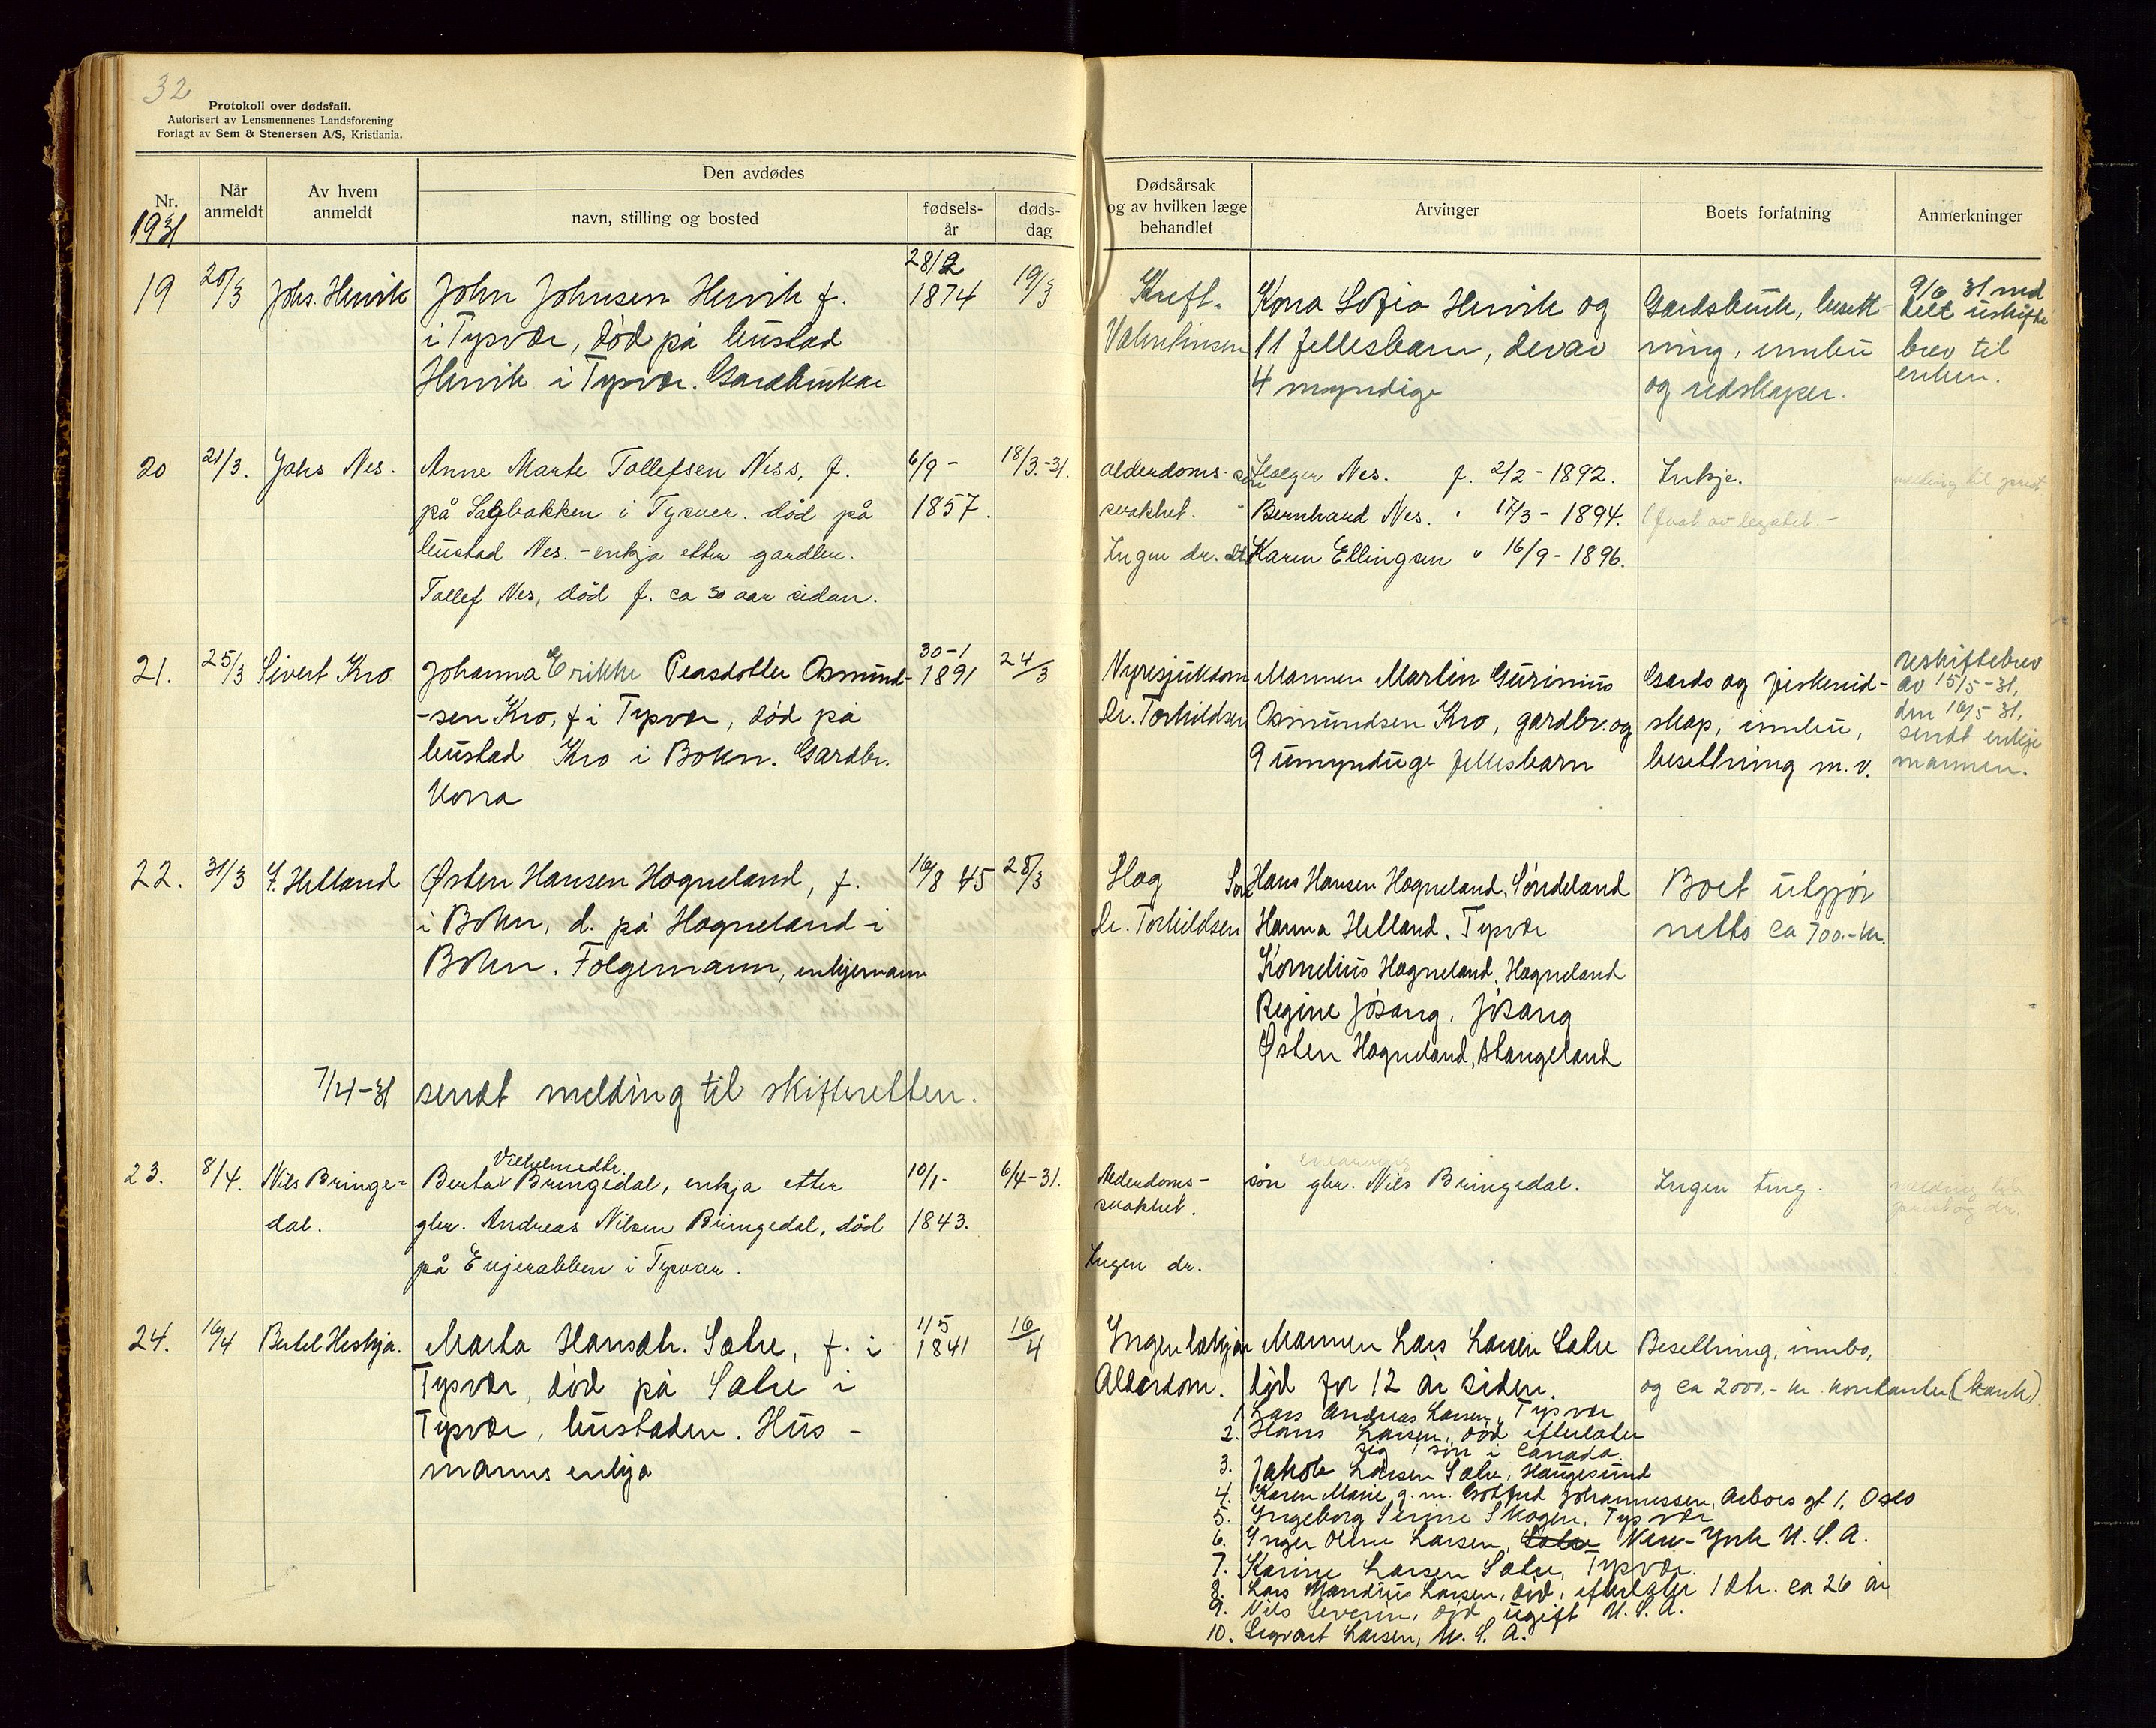 32
Protokoll over dødsfall.
Autorisert av Lensmennenes Landsforening
Forlagt av Sem & Stenersen A/S, Kristiania.
Nr.
1931
Når
anmeldt
Av hvem
anmeldt
Den avdødes
navn, stilling og bosted
fødsels-
år
døds-
dag
Dødsårsak
og av hvilken læge
behandlet
Arvinger
Boets forfatning
Anmerkninger
19
20/3
Johs. Hervik
John Johnsen Hervik f.
i Tysvær, död på bustad
Hervik i Tysvær. Gardbrukar
28/2
1874
19/3
Kreft.
Valentinsen
Kona Sofia Hervik og
11 fellesbarn, derav
4 myndige
Gardsbruk, besett-
ning, innbu
og redskaper.
9/6 31 med
delt uskifte
brev til
enken.
20
21/3.
Johs Nes.
Anne Marte Tollefsen Ness, f.
på Sagbakken i Tysver. död på
bustad Nes. - enkja etter gardbr.
Tollef Nes, död f. ca 30 aar sidan.
6/9 -
1857.
18/3.-31.
alderdoms-
svakhet.
Ingen dr.
Holger Nes. f. 2/2 - 1892.
Bernhard Nes. " 17/3 - 1894.
Karen Ellingsen " 16/9 - 1896.
Inkje.
melding til prest
21.
25/3
Sivert Kro
Johanna Erikke Peasdotter Osmund-
-sen Kro, f i Tysvær, död på
bustad Kro i Bokn. Gardbr.
kona
30-1
1891
24/3
Nyresjukdom
Dr. Torkildsen
Mannen Martin Gurinius
Osmundsen Kro, gardbr. og
9 umyndige fellesbarn
Gards og fiskereid-
skap, innbu,
besettning m. v.
uskiftebrev
av 15/5-31,
den 16/5-31,
sendt enkje
mannen.
22.
31/3
J. Helland
Østen Hansen Hogneland, f.
i Bokn, d. på Hogneland i
Bokn. Følgemann, enkjemann
16/8 45
28/3
Slag
Dr. Torkildsen
Hans Hansen Hogneland, Söndeland
Hanna Helland, Tysvær
Kornelius Hogneland, Hogneland
Regine Jösang, Jösang
Østen Hogneland, Stangeland
Boet utgjör
netto ca 700.- kr.
7/4-31 sendt melding til skifteretten.
23.
8/4.
Nils Bringe-
dal.
Vilhelmsdtr.
Berta Bringedal, enkja etter
gbr. Andreas Nilsen Bringedal, död
på Evjerabben i Tysvær.
10/1-
1843.
6/4-31.
Alderdoms-
svakhet.
Ingen dr.
enearving
sön gbr. Nils Bringedal.
Ingen ting.
melding til
prest og dr.
24.
16/4
Bertel Heskja.
Marta Hansdtr. Sætre, f. i
Tysvær, död på Sætre i
Tysvær, bustaden. Hus-
manns enkja
1/5
1841
16/4
Ingen lækjar
Alderdom.
Mannen Lars Larsen Sætre
död for 12 år siden.
1. Lars Andreas Larsen, Tysvær
2. Hans Larsen, död, efterlater
sig 1 sön i Canada
3. Jakob Larsen Sætre, Haugesund
4. Karen Marie g. m. Gotfred Johannessen, Arboes gt 1, Oslo
5. Ingeborg Serine Skogen, Tysvær
6. Inger Oline Larsen, New-York U. S. A.
7. Karine Larsen Sætre, Tysvær.
8. Lars Mandius Larsen, död, efterlater 1 dtr. ca 26 år
9. Nils Severin, död ugift U. S. A.
10. Sigvart Larsen, U. S. A.
Besettning, innbo,
og ca 2000.- kr. kontanter (bank)